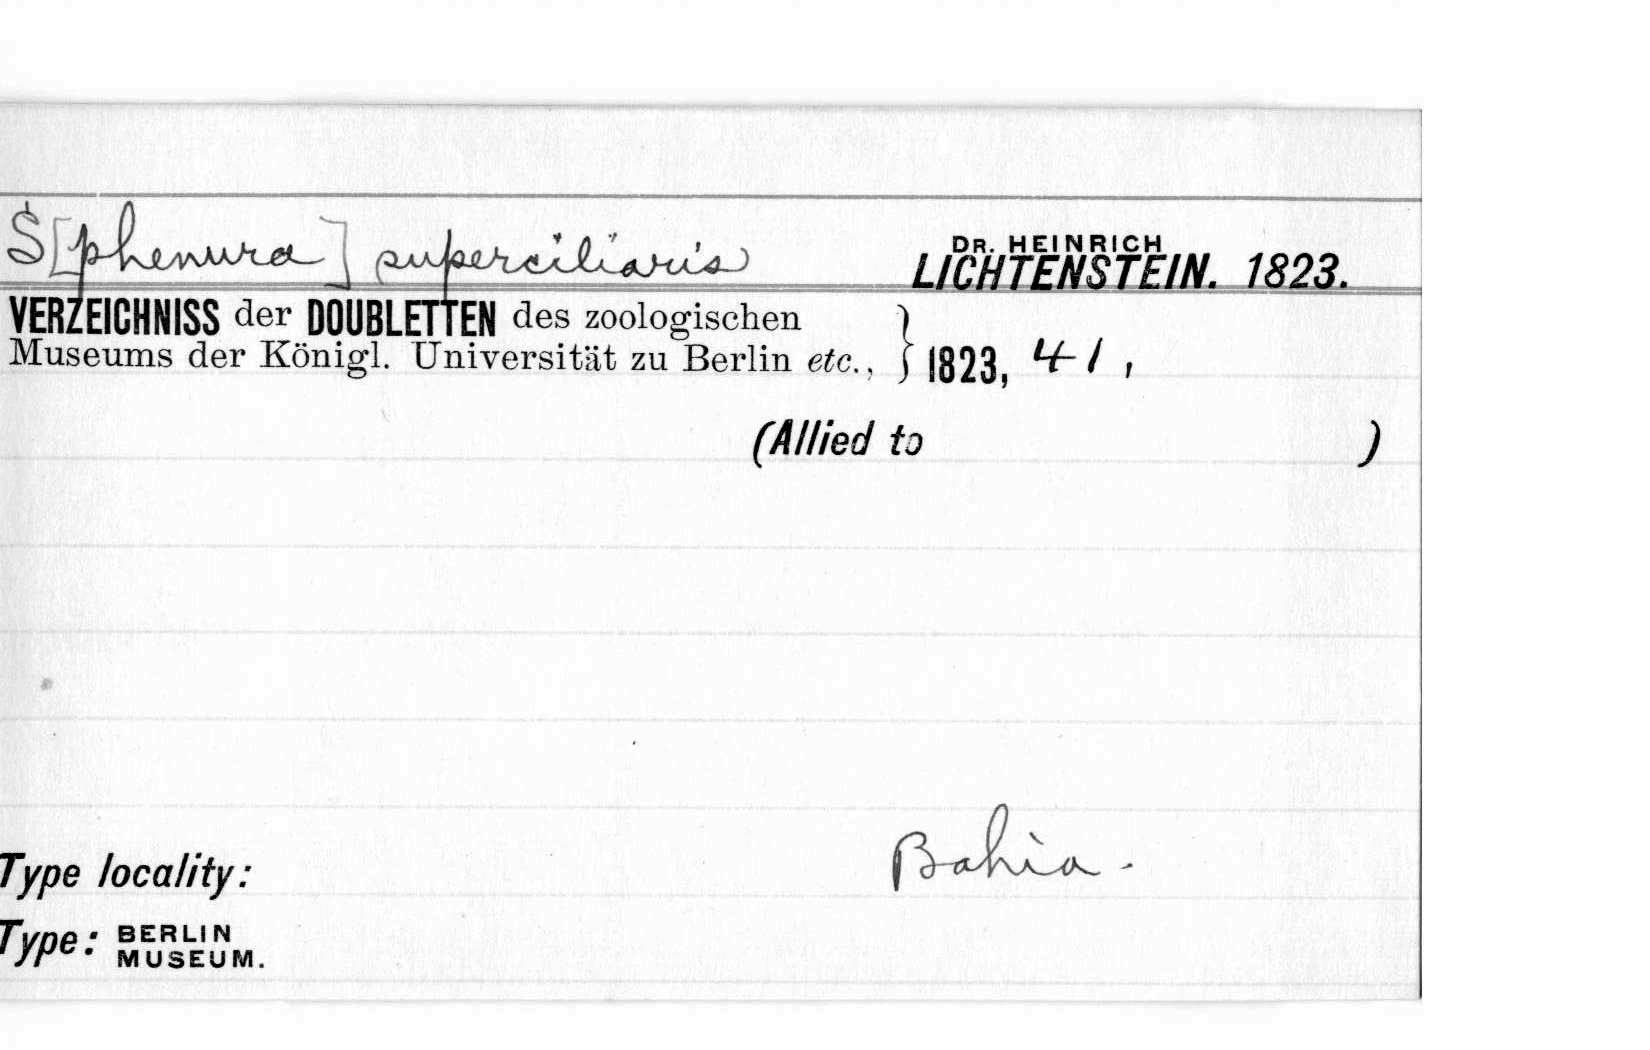 S[phenura] superciliaris DR. HEINRICH
LICHTENSTEIN. 1823.
VERZEICHNISS der DOUBLETTEN des zoologischen
Museums der Königl. Universität zu Berlin etc., } 1823, 41,
(Allied to )
Type locality: Bahia.
Type: BERLIN
MUSEUM.